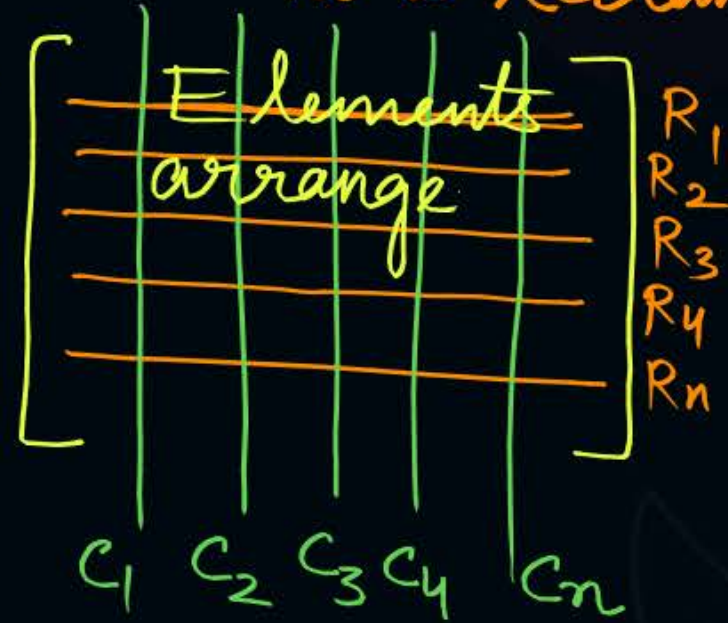 Elements
arrange
R1
R2
R3
R4
Rn
C1 C2 C3 C4 Cn